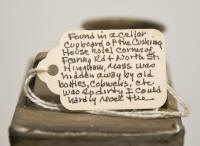 Found in a cellar
cupboard of the Cushing
House hotel corner of
Fearing Rd + North St.
Hingham, Mass was
hidden away by old
bottles, cobwebs, etc
was so dirty I could
hardly the